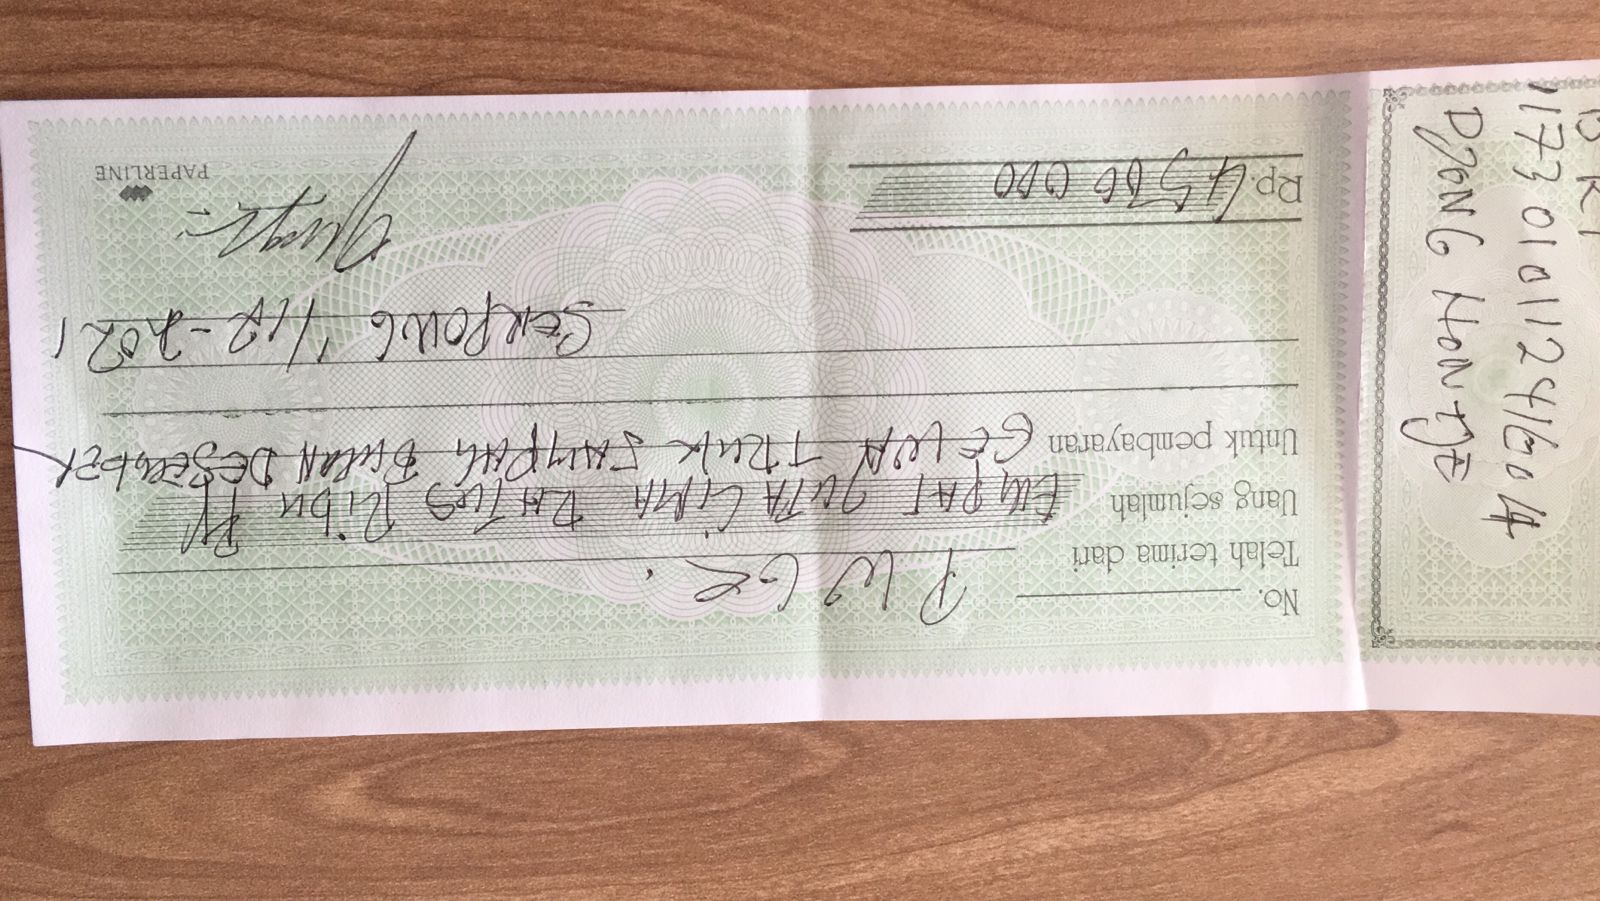 No.
Telah terima dari P W GK.
Uang sejumlah EMPAT JUTA LIMA RATUS RIBU RP
Untuk pembayaran SEWA TRUK SAMPAH BULAN DESEMBER
SERPONG 1/12-2021
Rp. 4500 000
PAPERLINE
BRI
1173 01011241604
DJONG HON TJE